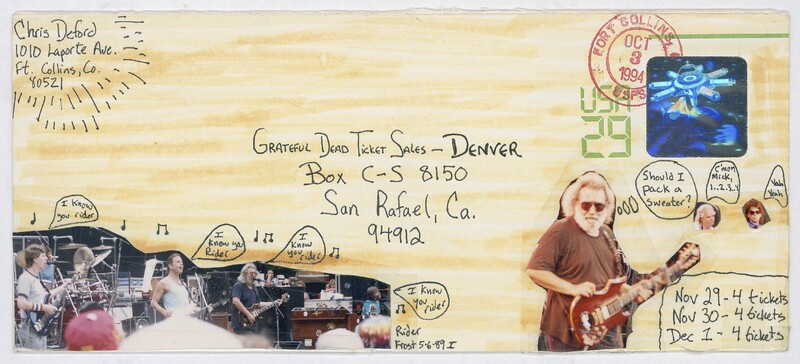 Chris Deford
1010 Laporte Ave.
Ft. Collins, Co.
80521
FORT COLLINS,
OCT
3
1994
USPS
USA
29
GRATEFUL DEAD TICKET SALES – DENVER
Box C-S 8150
San Rafael, Ca.
94912
Should I
pack a
sweater?
C'mon
Mick,
1..2..3..4
Yah
Yeah
I know
you rider
I know you
Rider
I know
you rider
I know
you rider
Rider
Frost 5·6·89 I
Nov 29 - 4 tickets
Nov 30 - 4 tickets
Dec 1 - 4 tickets